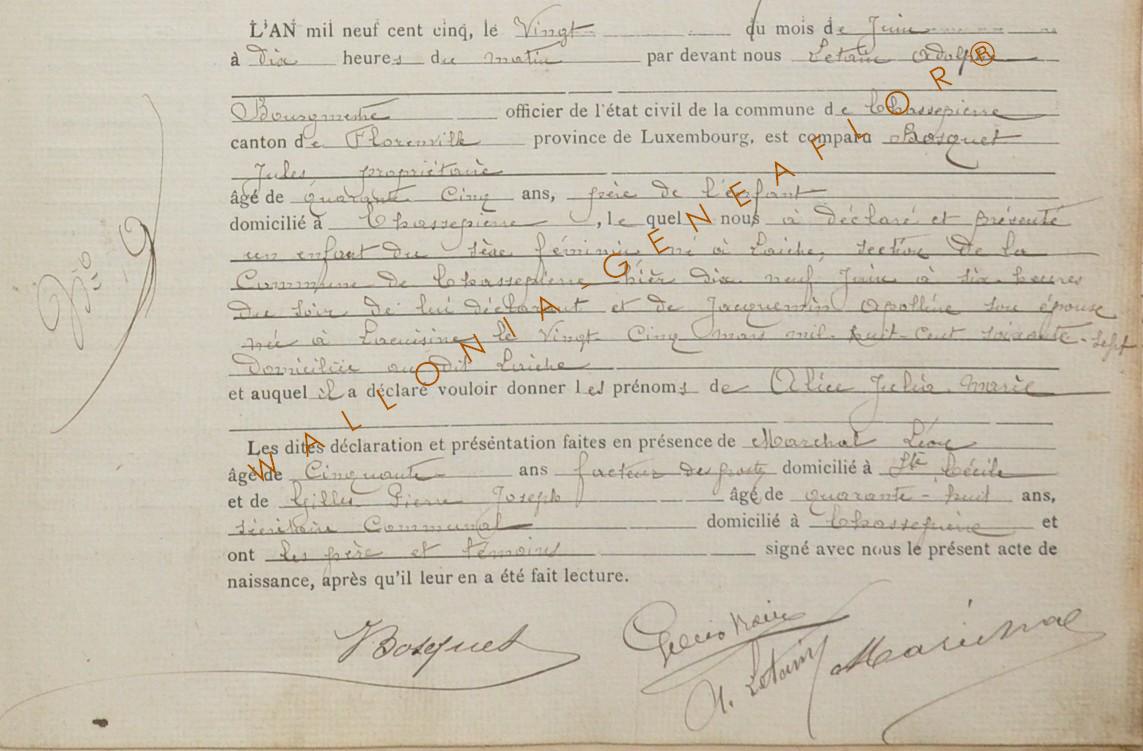 L'AN mil neuf cent cinq, le Vingt du mois de Juin
à Dix heures du matin par devant nous Letain Adolphe
Bourgmestre officier de l'état civil de la commune de Chassepierre
canton de Florenville province de Luxembourg, est comparu Bosquet
Jules, propriétaire
âgé de quarante Cinq ans, père de l'enfant
domicilié à Chassepierre, le quel nous a déclaré et présenté
un enfant du sèxe féminin né à Laiche, section de la
Commune de Chassepierre hièr dix neuf Juin à six heures
du soir de lui déclarant et de Jacquemin Apolline son épouse
née à Lacuisine le Vingt Cinq mars mil huit cent soixante-sept
domiciliée au dit Laiche
et auquel il a déclaré vouloir donner les prénoms de Alice Julia Marie
Les dites déclaration et présentation faites en présence de Marchal Léon
âgé de Cinquante ans facteur des postes domicilié à Ste Cécile
et de Gilles Pierre Joseph âgé de quarante-huit ans,
secrétaire Communal domicilié à Chassepierre et
ont les père et témoins signé avec nous le présent acte de
naissance, après qu'il leur en a été fait lecture.
JBosquet
A. Letain
WALLONIA-GENEAFLOR®